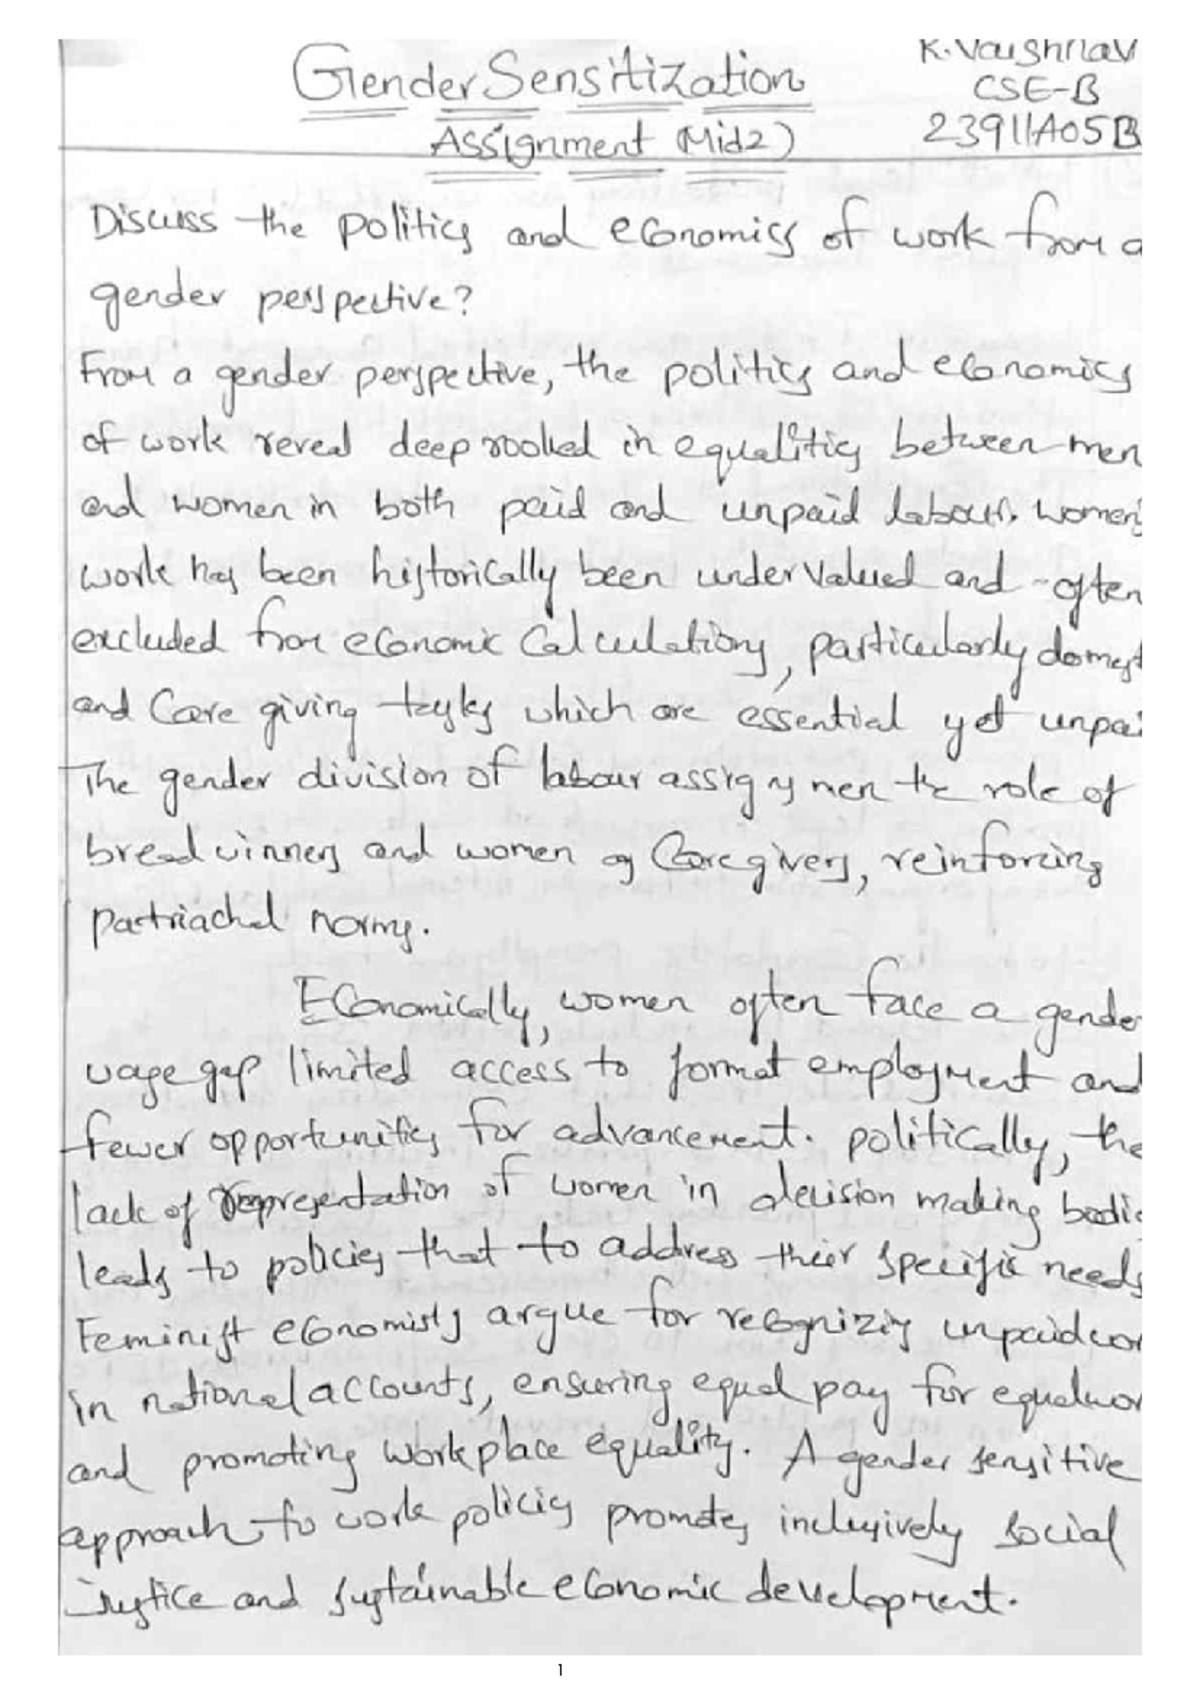 K. Vaishnav
Gender Sensitization
CSE-B
Assignment (Mid2)
23911A05B
Discuss the politics and economics of work from a
gender perspective?
From a gender perspective, the politics and economics
of work reveal deep rooted in equalities between men
and women in both paid and unpaid labour. women
work has been historically been undervalued and often
excluded from economic calculations, particularly domest
and Care giving tasks which are essential yet unpai
The gender division of labour assigns men the role of
breadwinners and women as Caregivers, reinforcing
patriachal norms.
Economically, women often face a gender
wage gap limited access to formal employment and
fewer opportunities for advancement. politically, the
lack of representation of women in decision making bodie
leads to policies that to address their specific needs
Feminist economists argue for recognizing unpaid wor
in national accounts, ensuring equal pay for equal wor
and promoting workplace equality. A gender sensitive
approach to work policies promotes inclusively social
justice and sustainable economic development.
1